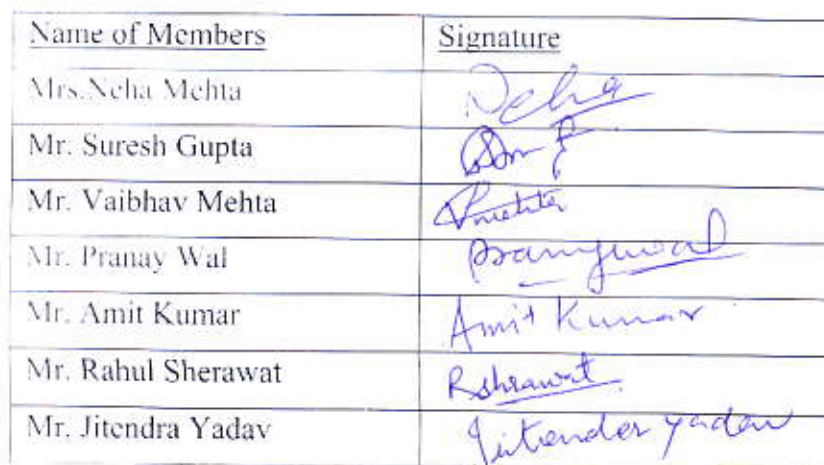 Name of Members Signature
Mrs.Neha Mehta Neha
Mr. Suresh Gupta
Mr. Vaibhav Mehta Vmehta
Mr. Pranay Wal Pranaywal
Mr. Amit Kumar Amit Kumar
Mr. Rahul Sherawat Rshrawat
Mr. Jitendra Yadav Jitender yadav